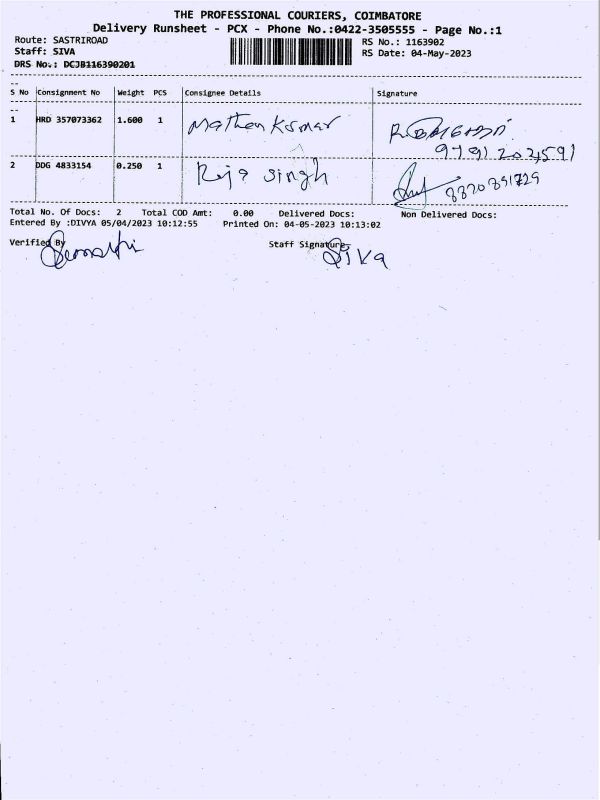 THE PROFESSIONAL COURIERS, COIMBATORE
Delivery Runsheet - PCX - Phone No.:0422-3505555 - Page No.:1
Route: SASTRIROAD RS No.: 1163902
Staff: SIVA RS Date: 04-May-2023
DRS No.: DCJB116390201
S No Consignment No Weight PCS Consignee Details Signature
1 HRD 357073362 1.600 1 Mathan Kumar
2 DDG 4833154 0.250 1 Raja Singh
Total No. Of Docs: 2 Total COD Amt: 0.00 Delivered Docs: Non Delivered Docs:
Entered By :DIVYA 05/04/2023 10:12:55 Printed On: 04-05-2023 10:13:02
Verified By Staff Signature
Siva